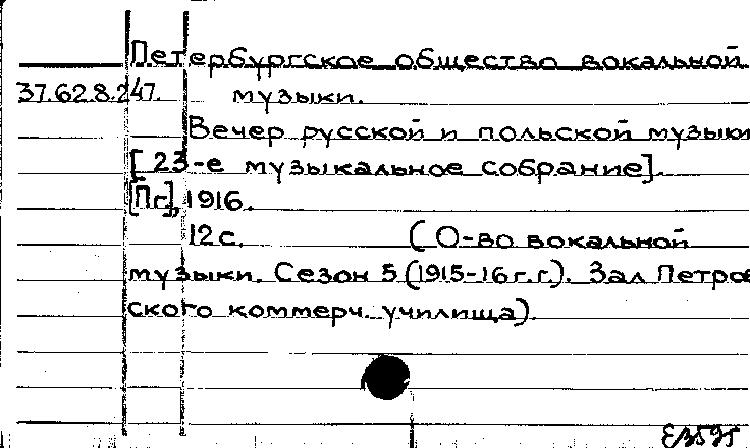 Петербургское общество вокальной
37.62.8.247. музыки.
Вечер русской и польской музыки
[23-е музыкальное собрание].
[Пг.], 1916.
12 с. (О-во вокальной
музыки. Сезон 5 (1915-16 г.г.). Зал Петров
ского коммерч. училища).